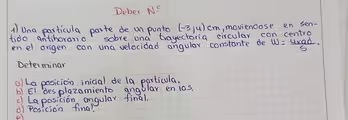 Deber Nº
1) Una partícula parte de un punto (-3,4) cm, moviendose en sen-
tido antihorario sobre una trayectoria circular con centro
en el origen con una velocidad angular constante de W= 4rad.
s
Determinar
a) La posición inicial de la partícula.
b) El desplazamiento angular en 10s.
c) La posición angular final.
d) Posición final.
e)